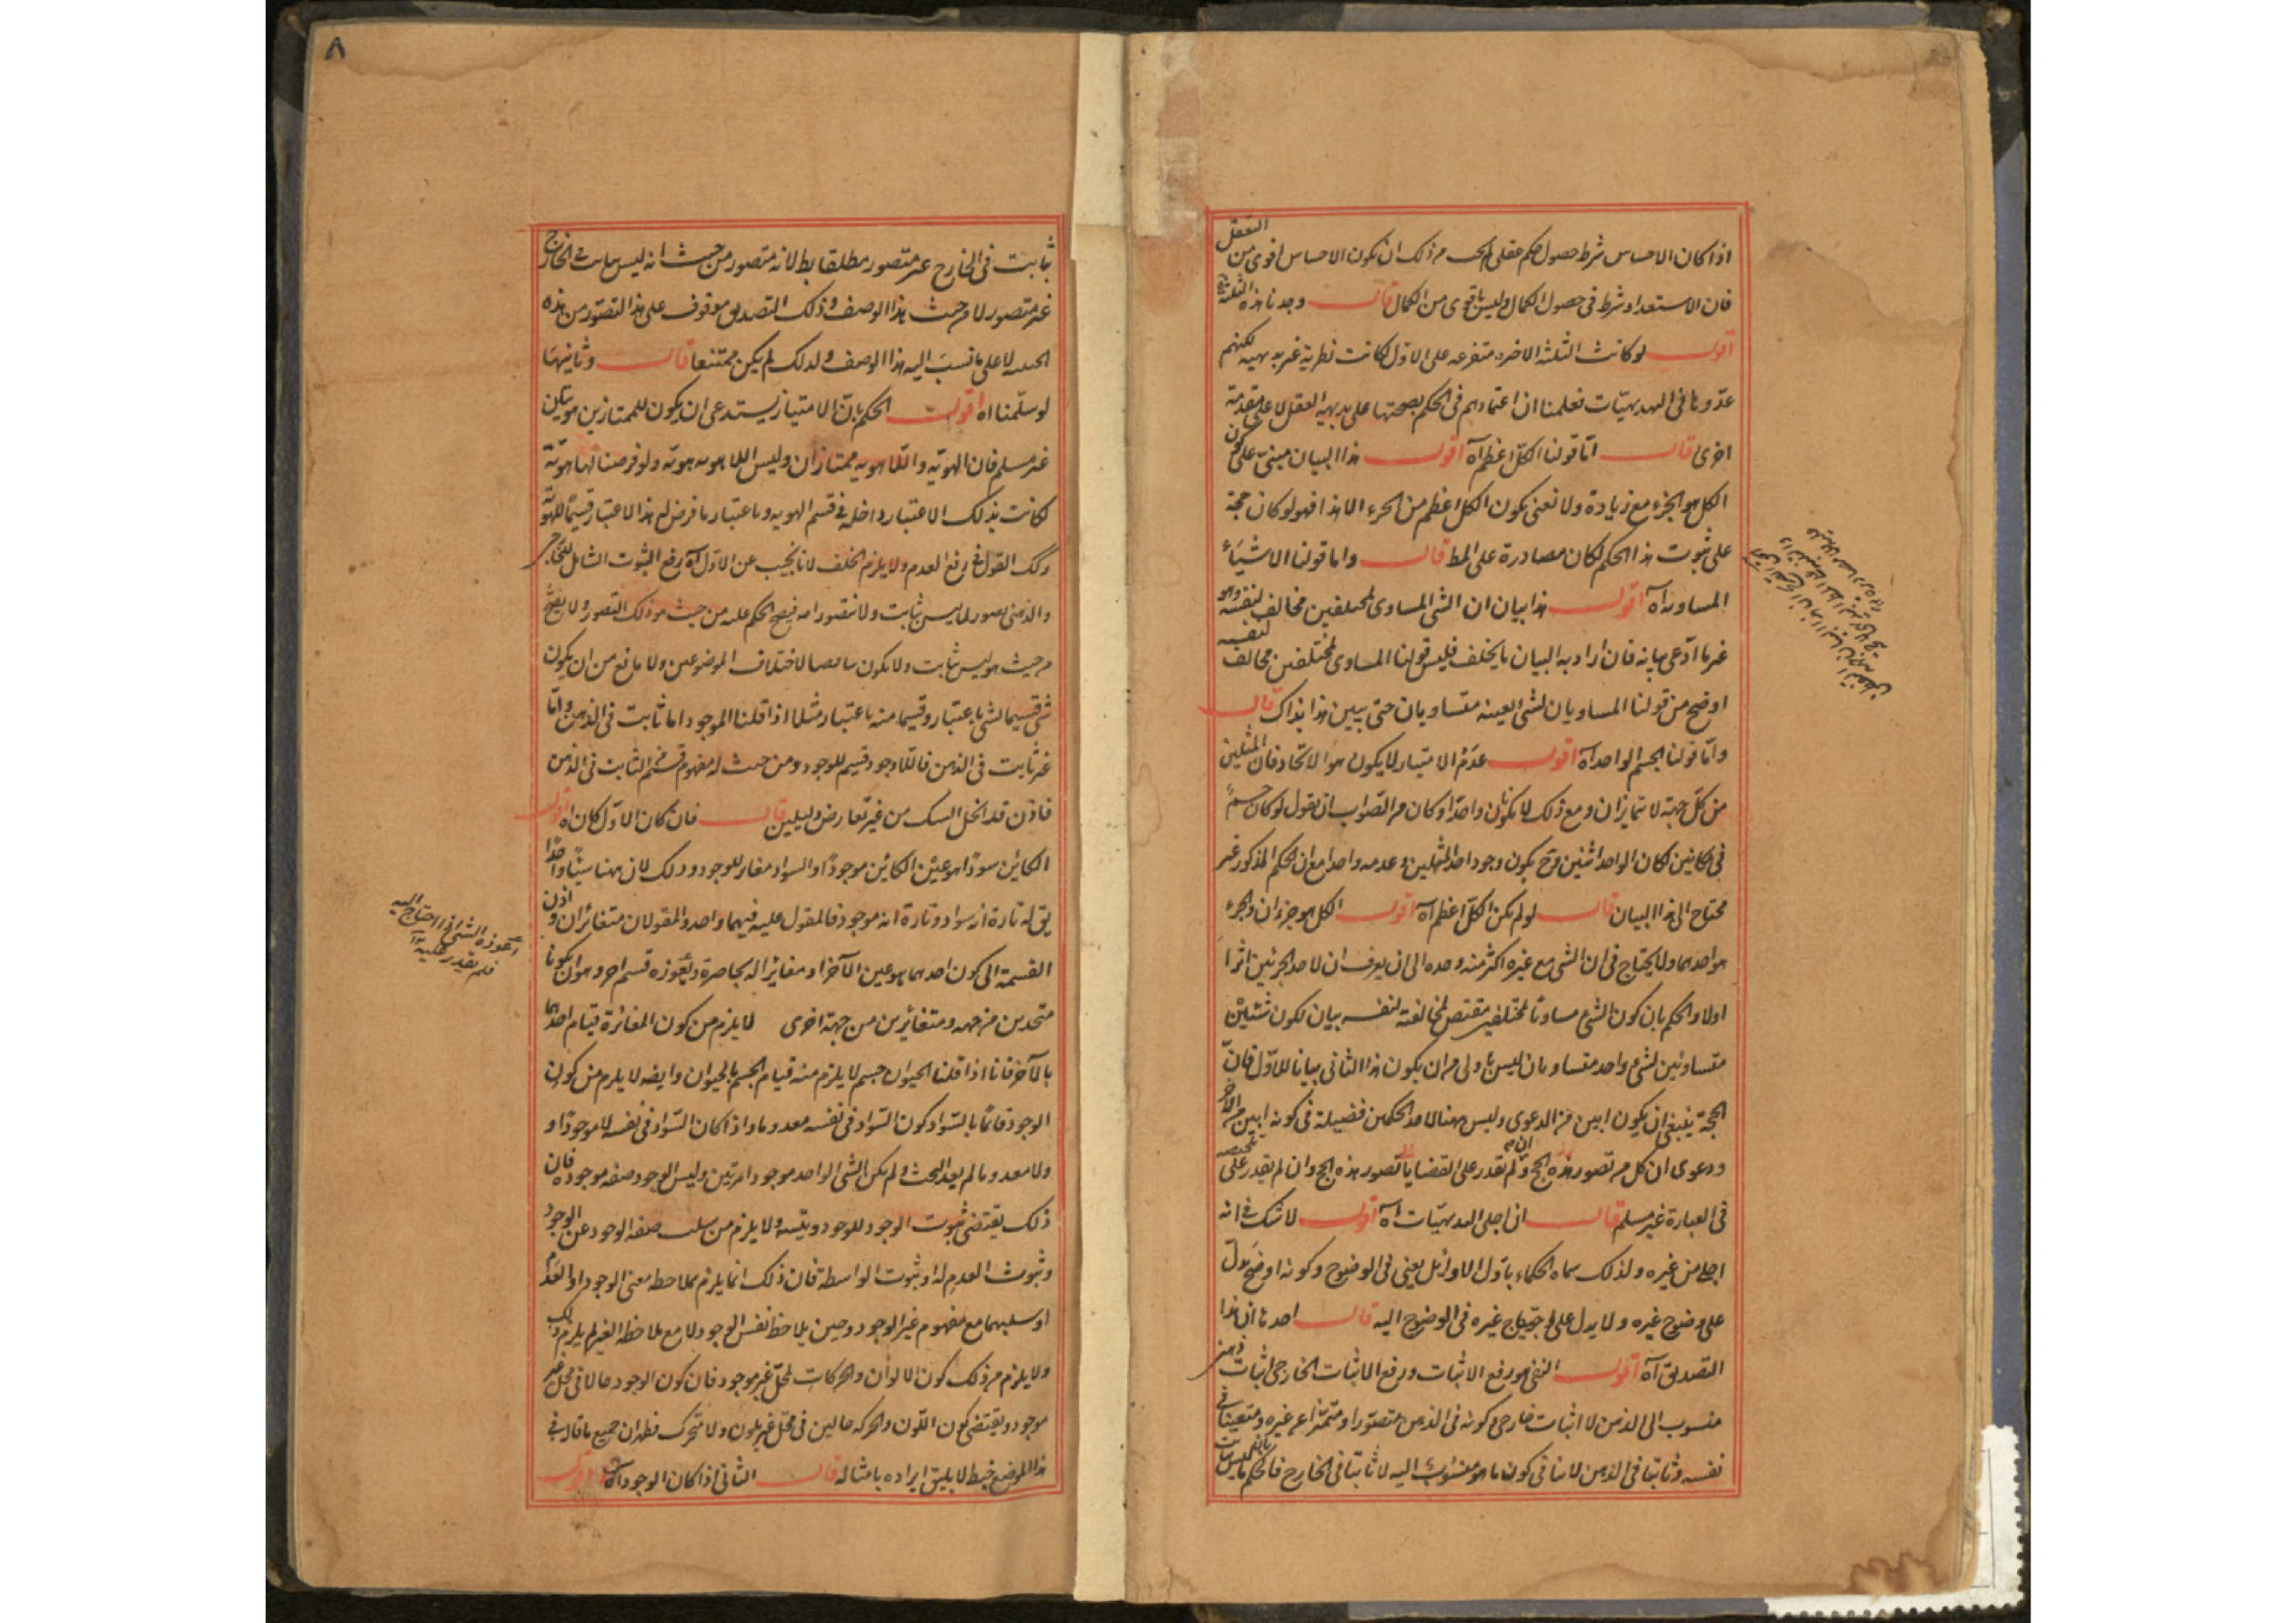 اذا كان الاحساس شرط حصول حكم عقلى لم يجب من ذلك ان يكون الاحساس اقوى من التعقل
فان الاستعداد شرط فى حصول الكمال وليس باقوى من الكمال قال وجدنا هذه الثلثة
اقول لو كانت الثلثة الاخيره متفرعه على الاول لكانت نظرية غير بديهيه لكنهم
عدّوها فى البديهيّات فعلمنا ان اعتمادهم فى الحكم بصحتها على بديهة العقل لا على مقدمة
اخرى قال امّا قولنا الكلّ اعظم آه اقول هذا البيان مبنىّ على كون
الكل هو الجزء مع زيادة ولا نعنى بكون الكل اعظم من الجزء الا هذا فهو لو كان حجة
على ثبوت هذا الحكم لكان مصادرة على المط قال واما قولنا الاشياء
المساويه آه اقول هذا بيان ان الشى المساوى لمختلفين مخالف لنفسه وهو
غير ما ادّعى بيانه فان اراد به البيان بالخلف فليس قولنا المساوى لمختلفين مخالف لنفسه
اوضح من قولنا المساويان لشئ بعينه متساويان حتى يبين هذا بذاك قال
وامّا قولنا الجسم الواحد آه اقول عدم الامتياز لا يكون هو الاتحاد فان المثلين
من كلّ جهة لا تمايزان ومع ذلك لا يكونان واحدًا وكان من الصّواب ان يقول لو كان جسمٌ
فى مكانين لكان الواحد اثنين وح يكون وجود احد المثلين وعدمه واحدا مع ان الحكم المذكور غير
محتاج الى هذا البيان قال لو لم يكن الكلّ اعظم آه اقول الكل هو جزءان والجزء
هو احدهما ولا يحتاج فى ان الشى مع غيره اكثر منه وحده الى ان يعرف ان لاحد الجزئين اثرا
اولا والحكم بان كون الشئ مساويا لمختلفين مقتض لمخالفته لنفسه بيان لكون شيئين
متساويين لشئ واحد متساويان ليس باولى من ان يكون هذا الثانى بيانا للاوّل فانّ
الحجة ينبغى ان يكون ابين من الدعوى وليس ههنا لاحد الحكمين فضيلة فى كونه ابين من الاخر
ودعوى ان كل من تصور هذه الحجج ولم يقدر على القضايا تصور هذه الحجج وان لم يقدر على
فى العبارة غير مسلم قال ان اجلى البديهيّات آه اقول لا شك فى انه
اجلى من غيره ولذلك سماه الحكماء باوّل الاوائل يعنى فى الوضوح وكونه اوضح لا يدلّ
على وضوح غيره ولا يدل على احتياج غيره فى الوضوح اليه قال احدها ان هذا
التصديق آه اقول النفى هو رفع الاثبات ورفع الاثبات الخارجى اثبات ذهنى
منسوب الى الذهن لا اثبات خارجى وكونه فى الذهن متصوّرا ومتميّزا عن غيره ومتعينا فى
نفسه وثابتا فى الذهن لا ينافى كون ما هو منسوب اليه لا ثابتا فى الخارج فالحكم
٨
ثابت فى الخارج غير متصور مطلقا بط لانه متصور من حيث انه ليس بثابت فى الخارج
غير متصور لا من حيث هذا الوصف وذلك التصديق موقوف على هذا التصوّر من هذه
الحيثيه لا على ما نسب اليه هذا الوصف ولذلك لم يكن ممتنعا قال وثانيها
لو سلّمنا آه اقول الحكم بانّ الامتياز يستدعى ان يكون للممتازين هويتان
غير مسلم فان الهويّه واللّاهويه ممتازان وليس اللاهويه هويّه ولو فرضنا لها هويّه
لكانت بذلك الاعتبار داخله فى قسم الهويه وباعتبار ما فرض له هذا الاعتبار قسيمًا للهويّة
وكك القول فى رفع العدم ولا يلزم الخلف لانا نجيب عن الاول آه رفع الثبوت الشامل للخارجى
والذهنى يصور لما ليس بثابت ولا متصور اصلا فيصح الحكم عليه من حيث هو ذلك التصور ولا يصح
من حيث هو ليس بثابت ولا يكون تناقضا لاختلاف الموضوعين ولا مانع من ان يكون
شئ قسيما لشئ باعتبار وقسما منه باعتبار مثلا اذا قلنا الموجود اما ثابت فى الذهن وامّا
غير ثابت فى الذهن فاللّاموجود قسيم للموجود ومن حيث له مفهوم قسم من الثابت فى الذهن
فاذن قد انحل الشك من غير تعارض دليلين قال فان كان الاوّل كان آه اقول
الكائن سوادًا هو عين الكائن موجودًا والسواد مغاير للوجود وذلك لان ههنا شيئا واحدًا
يق له تارة انه سواد وتارة انه موجود فالمقول عليه فيهما واحد والمقولان متغائران واذن
القسمة الى كون احدهما هو عين الآخر او مغائرا له بحاصرة ويعوزه قسم آخر وهو ان يكونا
متحدين من جهه ومتغائرين من جهة اخرى لا يلزم من كون المغائرة قيام احدهما
بالآخر فانا اذا قلنا الحيوان جسم لا يلزم منه قيام الجسم بالحيوان وايضه لا يلزم من كون
الوجود قائمًا بالسّواد كون السّواد فى نفسه معدوما واذا كان السّواد فى نفسه لا موجودًا و
ولا معدوما لم يعد البحث ولم يكن الشى الواحد موجودا مرّتين وليس الوجود صفه موجوده فان
ذلك يقتضى ثبوت الوجود للوجود ويتسه ولا يلزم من سلب صفه الوجود عن الوجود
وثبوت العدم له او ثبوت الواسطة فان ذلك انما يلزم بملاحظه معنى الوجود او العدم
او سلبهما مع مفهوم غير الوجود وحين يلاحظ نفس الوجود لا مع ملاحظه الغير لم يلزم ذلك
ولا يلزم من ذلك كون الالوان والحركات لمحلّ غير موجود فان كون الوجود حالا فى محل غير
موجود ويقتضى كون اللّون والحركه حالين فى محلّ غير ملون ولا متحرك فظهر ان جميع ما قال فى
هذا الموضع خبط لا يليق ايراده بامثاله قال الثانى اذا كان الوجود آه اقول
اعوزه الشئ اذا احتاج اليه
فلم يقدر عليه